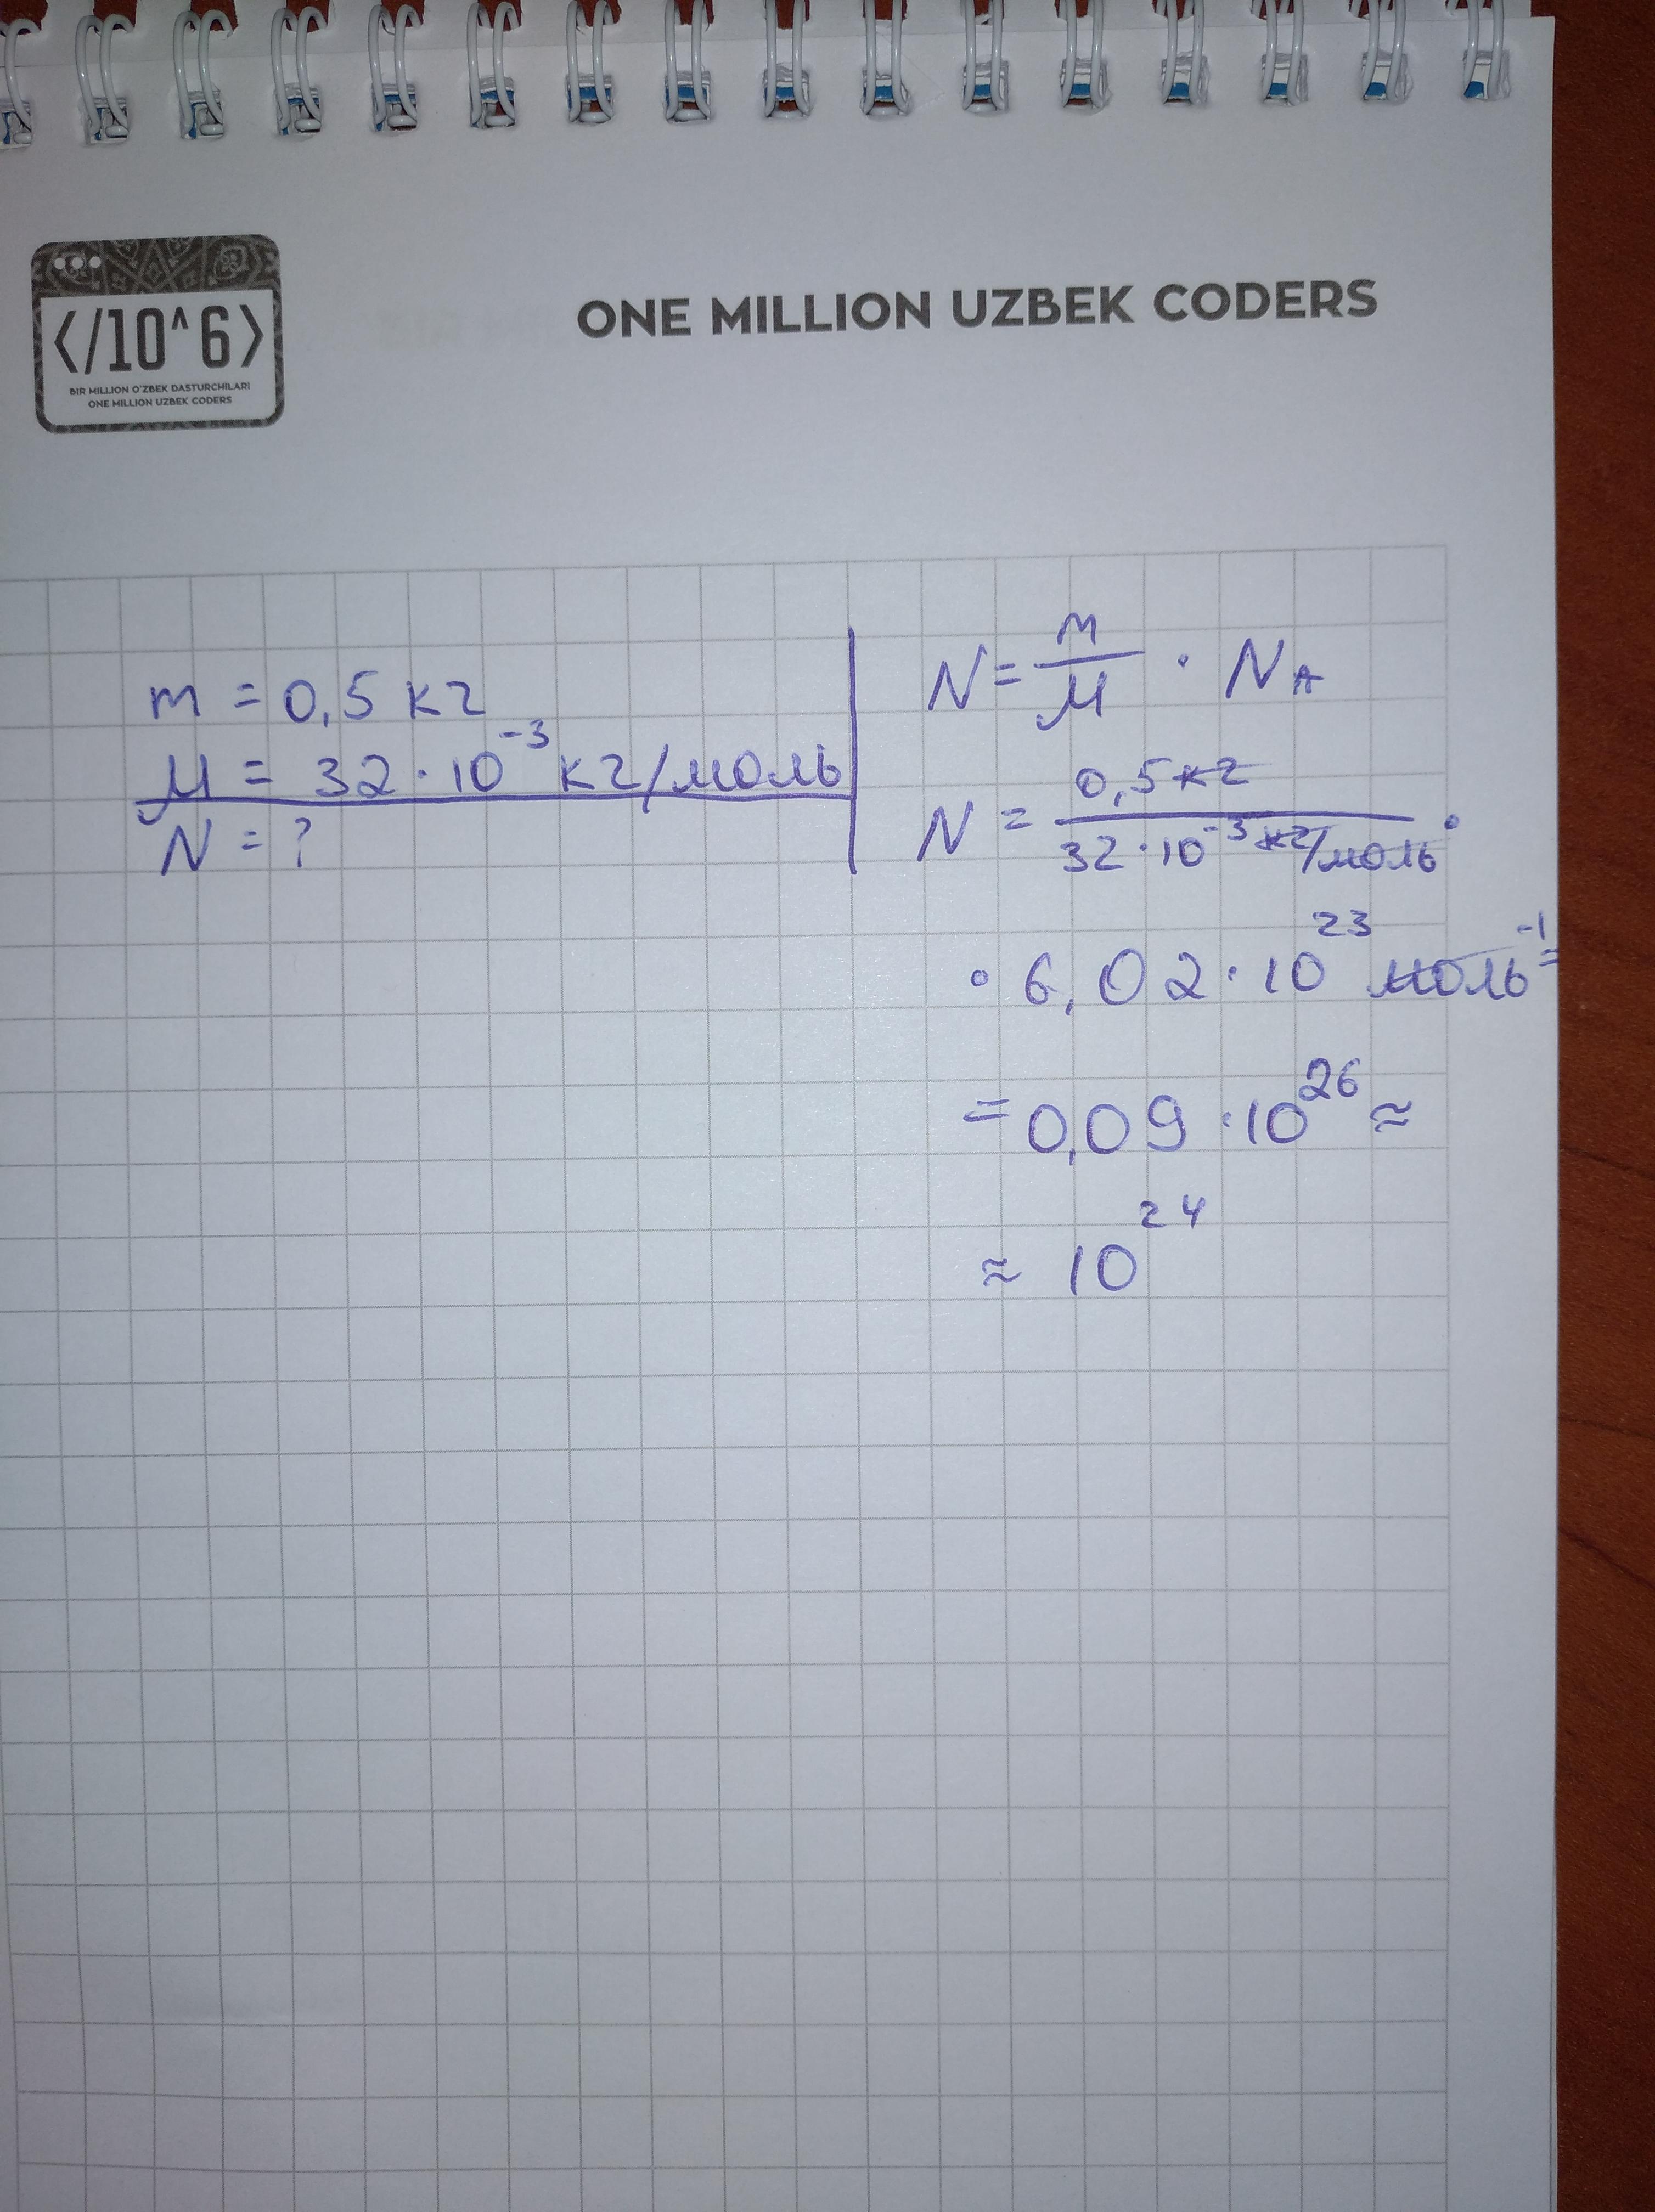 </10^6>
BIR MILLION O'ZBEK DASTURCHILARI
ONE MILLION UZBEK CODERS
ONE MILLION UZBEK CODERS
m = 0,5 кг
μ = 32 · 10⁻³ кг/моль
N = ?
N = m/μ · N_A
N = 0,5 кг / 32 · 10⁻³ кг/моль ·
· 6,02 · 10²³ моль⁻¹ =
= 0,09 · 10²⁶ ≈
≈ 10²⁴